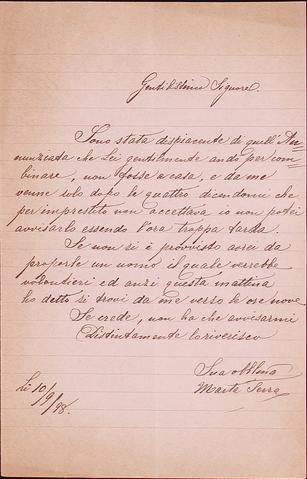 Gentilissimo Signore.
Sono stata dispiacente di quell'An-
nunziata che Lei gentilmente andò per com-
binare, non fosse a casa, e da me
venne solo dopo le quattro dicendomi che
per imprestito non accettava io non potei
avvisarlo essendo l'ora troppa tarda.
Se non si è provvisto avrei da
proporle un uomo il quale verrebbe
volontieri ed anzi questa mattina
ho detto si trovi da me verso le ore nove
Se crede, non ha che avvisarmi
Distintamente lo riverisco
Sua obblma
Marte Serra
Li 10/9/98.